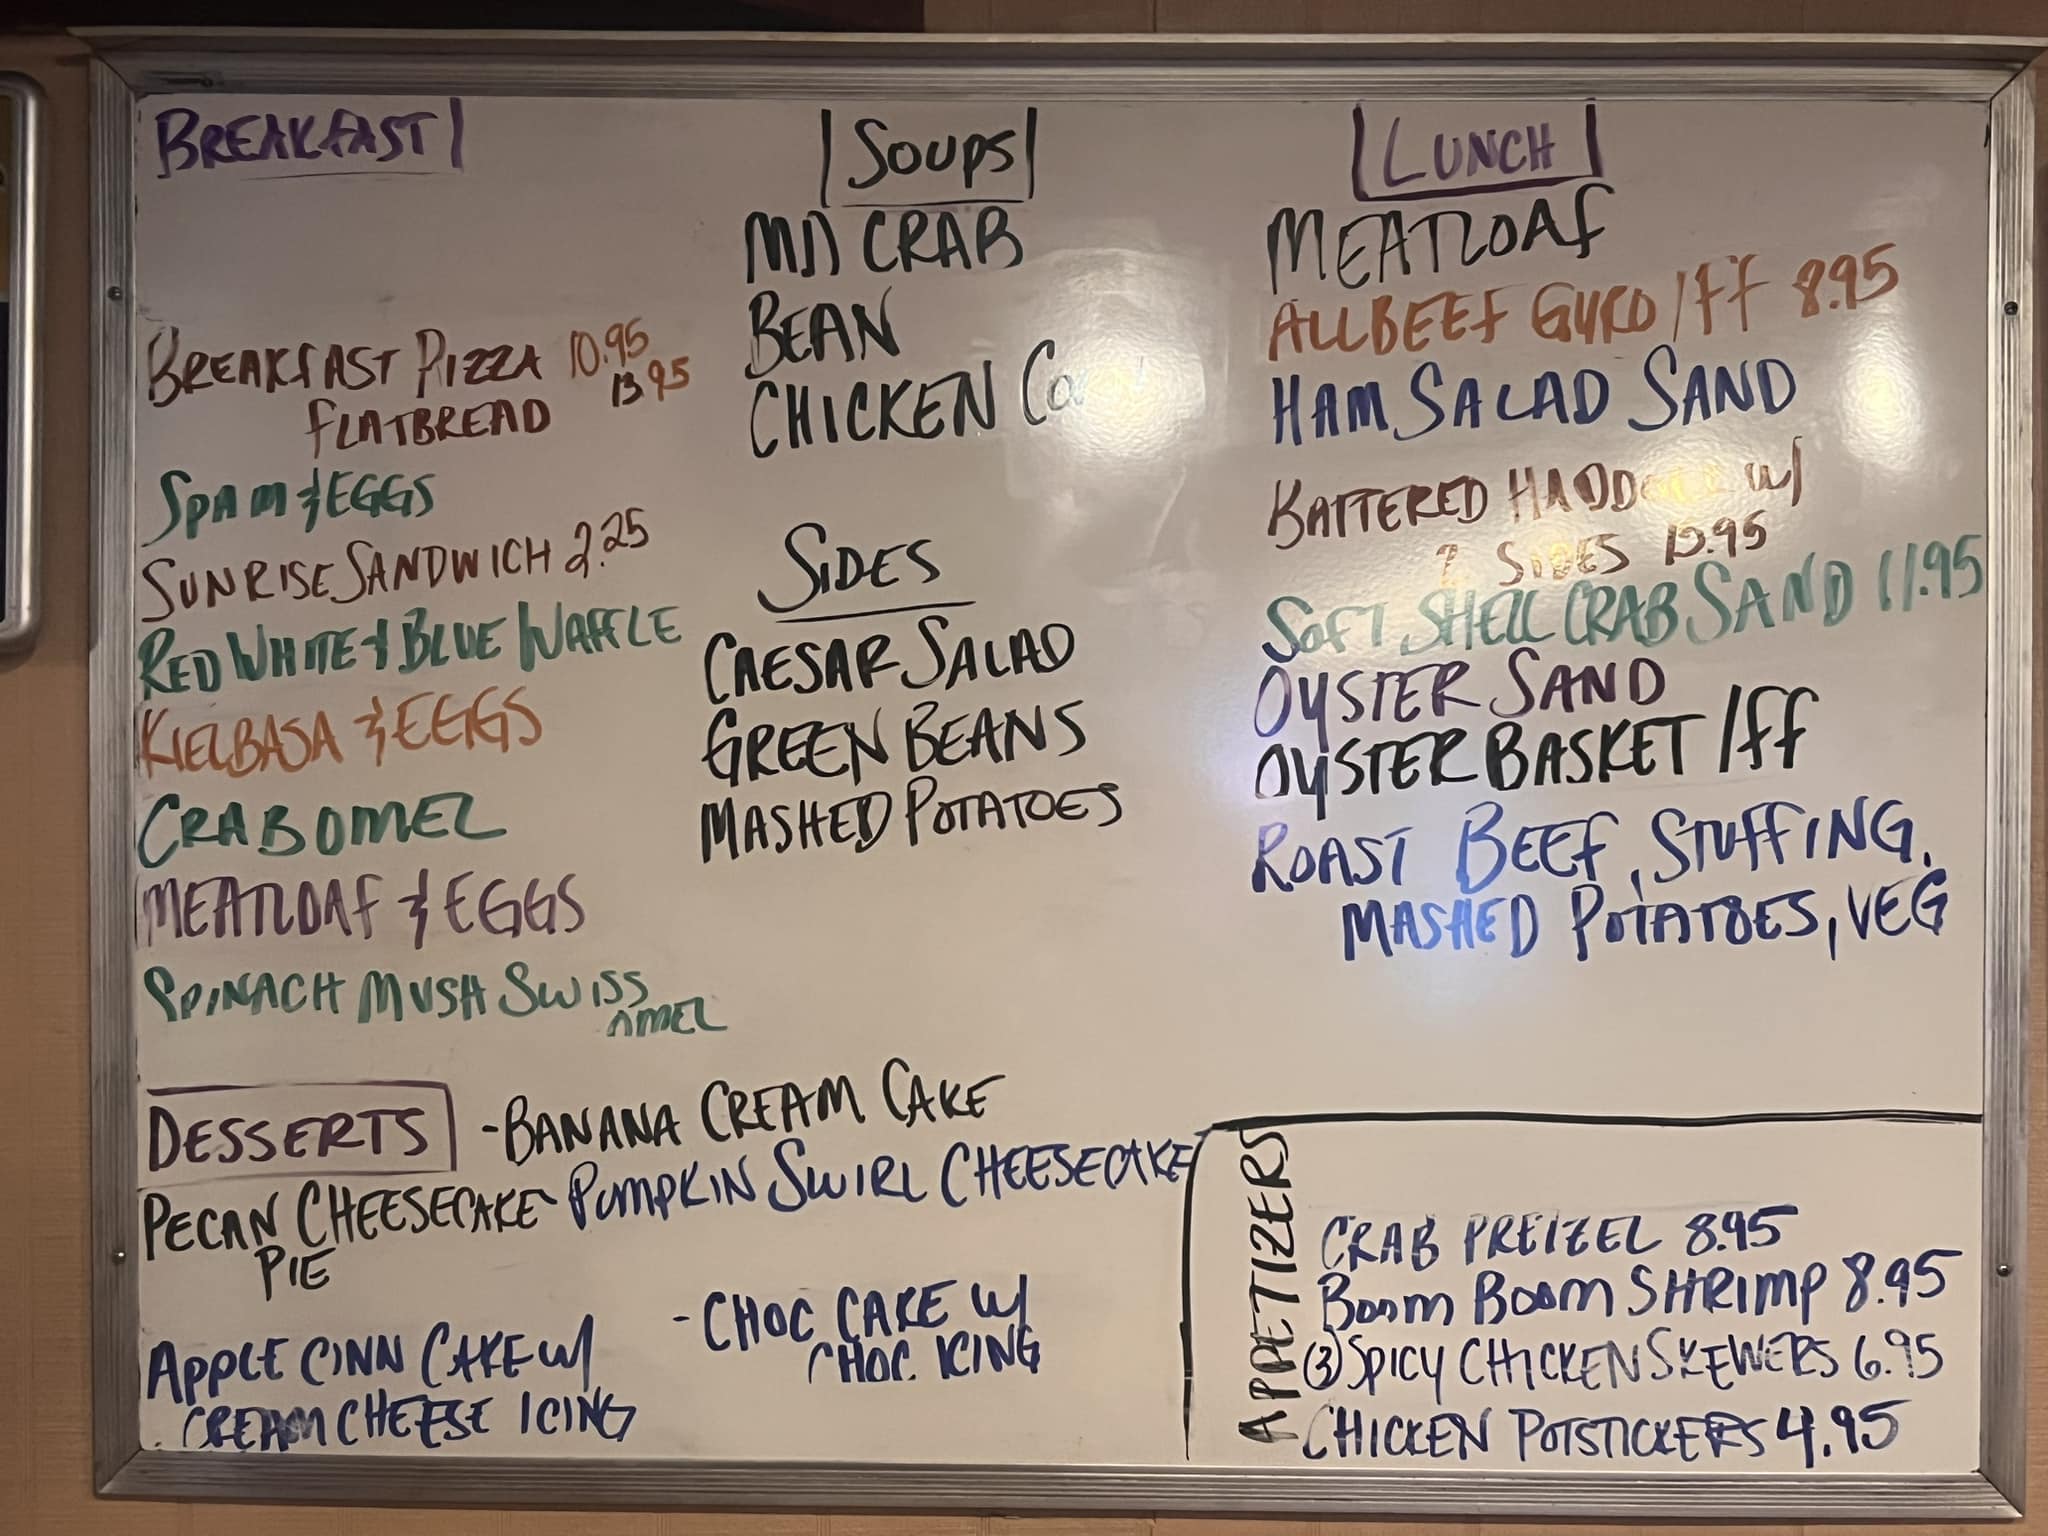 BREAKFAST
BREAKFAST PIZZA 10.95
FLATBREAD 13.95
SPAM & EGGS
SUNRISE SANDWICH 2.25
RED WHITE & BLUE WAFFLE
KIELBASA & EGGS
CRAB OMEL
MEATLOAF & EGGS
SPINACH MUSH SWISS
OMEL
SOUPS
MD CRAB
BEAN
CHICKEN
SIDES
CAESAR SALAD
GREEN BEANS
MASHED POTATOES
LUNCH
MEATLOAF
ALL BEEF GYRO / FF 8.95
HAM SALAD SAND
BATTERED HADDOCK W/
2 SIDES
SOFT SHELL CRAB SAND 11.95
OYSTER SAND
OYSTER BASKET / FF
ROAST BEEF, STUFFING,
MASHED POTATOES, VEG
DESSERTS
- BANANA CREAM CAKE
PECAN CHEESECAKE
PIE
- PUMPKIN SWIRL CHEESECAKE
APPLE CINN CAKE W/
CREAM CHEESE ICING
- CHOC CAKE W/
CHOC. ICING
APPETIZERS
CRAB PRETZEL 8.95
BOOM BOOM SHRIMP 8.95
(3) SPICY CHICKEN SKEWERS 6.95
CHICKEN POTSTICKERS 4.95